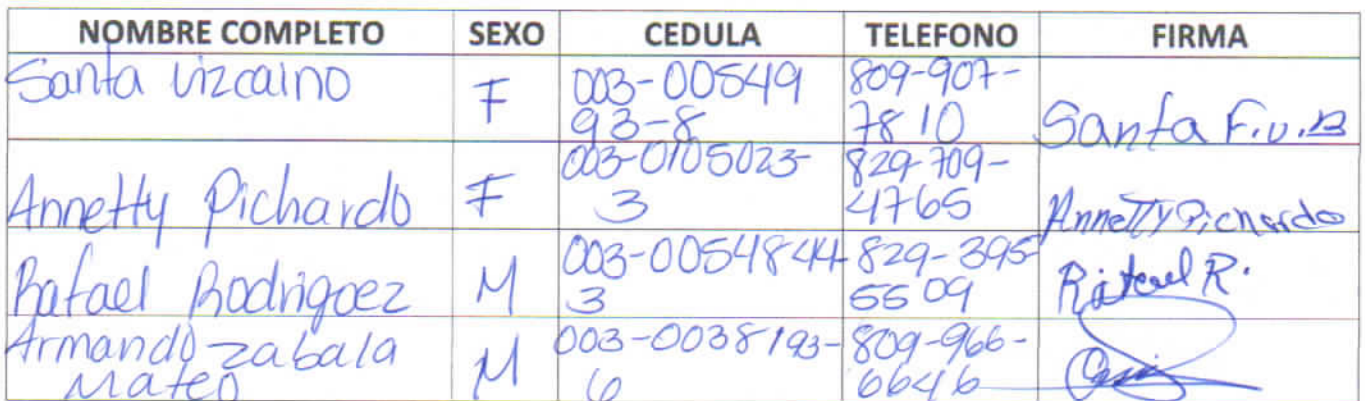 NOMBRE COMPLETO SEXO CEDULA TELEFONO FIRMA
Santa Vizcaino F 003-00549 809-907-
93-8 7810 Santa F.v.B
Annetty Pichardo F 003-0105023- 829-709-
3 4765 Annetty Pichardo
Rafael Rodrigoez M 003-0054844- 829-395-
3 5509 Rafael R.
Armando zabala M 003-0038193- 809-966-
Mateo 6 6646